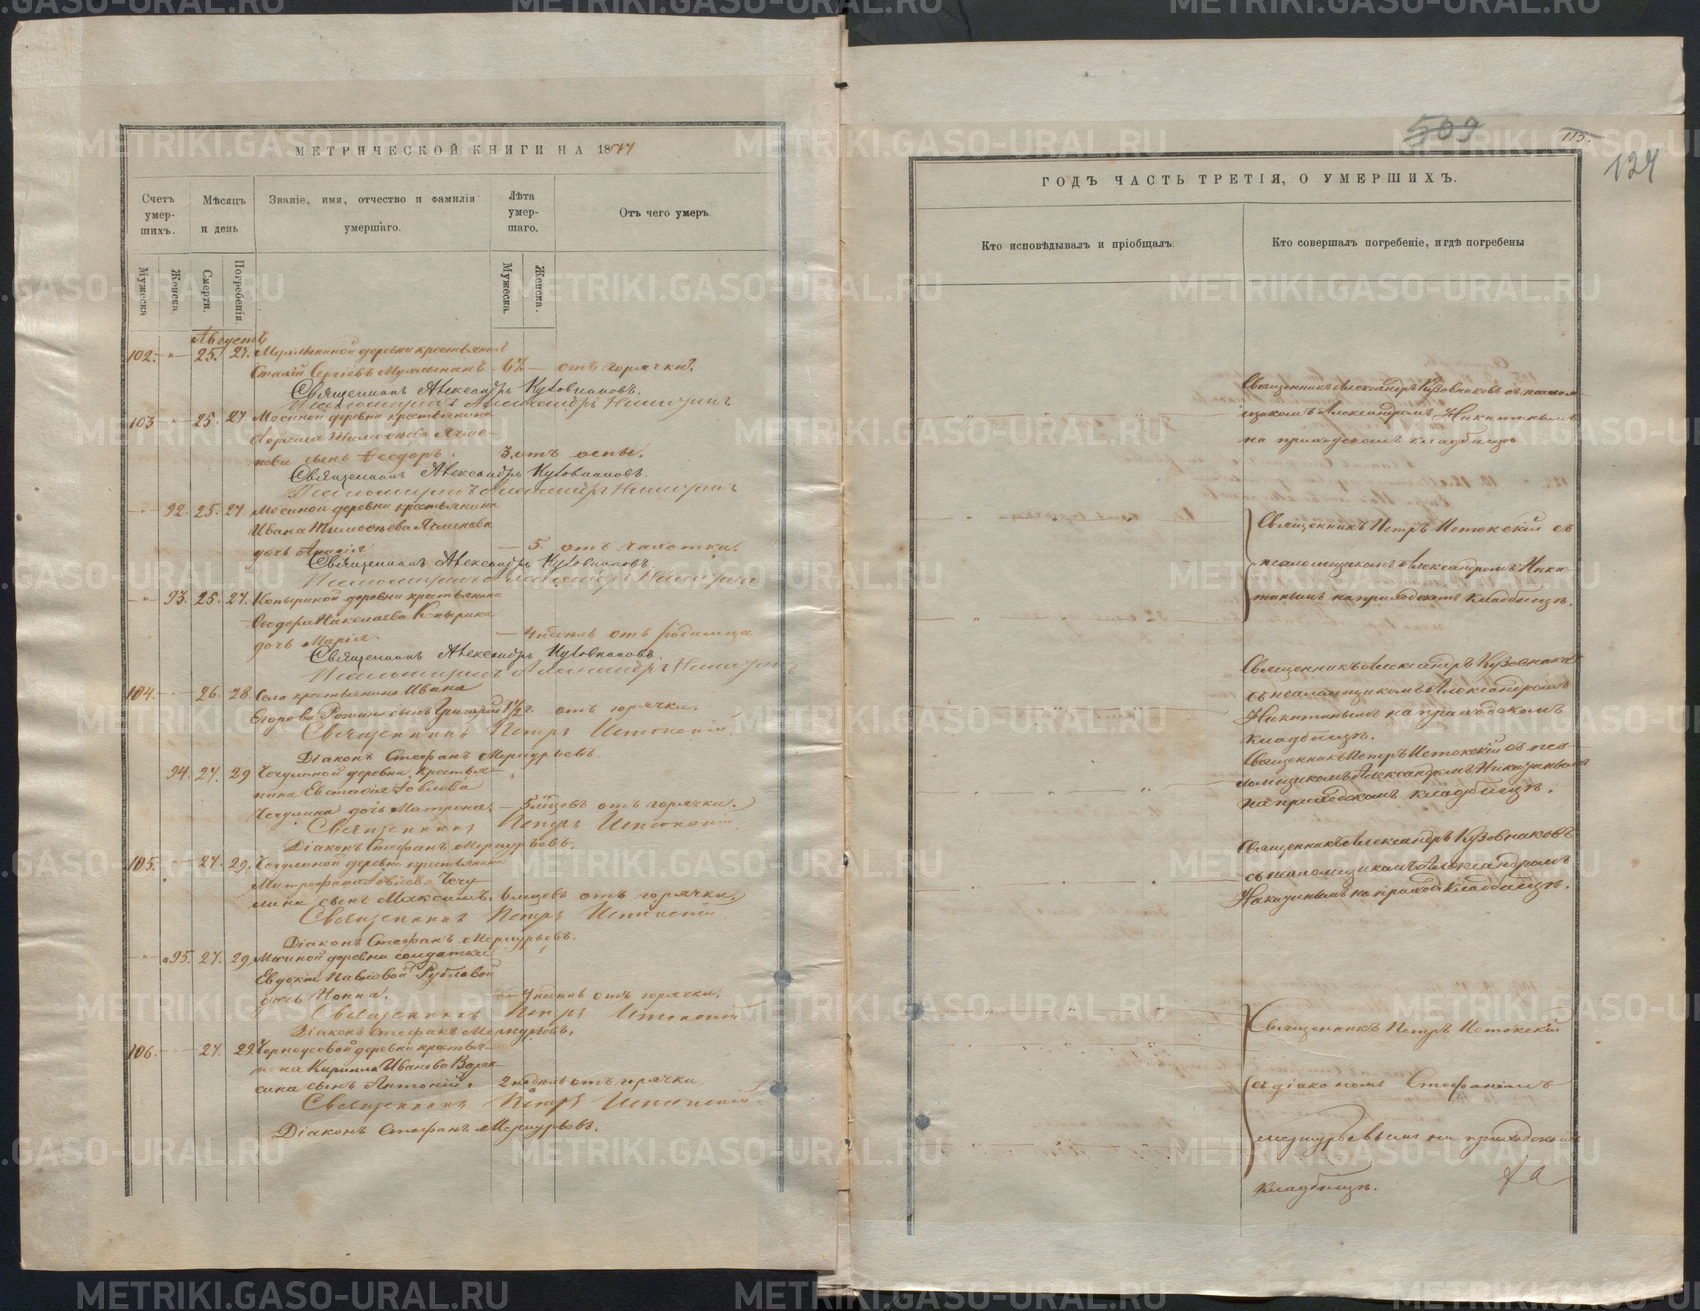 МЕТРИЧЕСКОЙ КНИГИ НА 1877
Счетъ умер-шихъ.
Мѣсяцъ и день
Званіе, имя, отчество и фамилія умершаго.
Лѣта умер-шаго.
Отъ чего умеръ.
Мужеска
Женска.
Смерти.
Погребенія.
Мужеска.
Женска.
Августъ
102. " 25. 27. деревни крестьянинъ
Сергіевъ 67 — отъ горячки.
Священникъ Александръ Кузовниковъ.
Псаломщикъ Александръ Никитинъ
103 " 25. 27. Мосиной деревни крестьянина
сынъ Ѳеодоръ. 3. отъ оспы.
Священникъ Александръ Кузовниковъ.
Псаломщикъ Александръ Никитинъ
" 92. 25. 27. Мосиной деревни крестьянина
Ивана Тимоѳеева
дочь 5. отъ чахотки.
Священникъ Александръ Кузовниковъ.
Псаломщикъ Александръ Никитинъ
" 93. 25. 27. Копыриной деревни крестьянина
Ѳеодора Николаева Копырина
дочь Марія. — 4 недѣль отъ родимца
Священникъ Александръ Кузовниковъ.
Псаломщикъ Александръ Никитинъ
104. " 26. 28. Села крестьянина Ивана
Егорова сынъ Григорій 1 1/2 г. отъ горячки.
Священникъ Петръ Истокскій.
Діаконъ Стефанъ Меркурьевъ
94. 27. 29 Чечулиной деревни, крестья-
нина Евстафія Іовлева
Чечулина дочь Матрона — 5 мѣсцевъ отъ горячки.
Священникъ Петръ Истокскій
Діаконъ Стефанъ Меркурьевъ.
105. " 27. 29. Чечулиной деревни крестьянина
Митрофана Іовлева Чечу-
лина сынъ Максимъ. 6 мѣсцевъ отъ горячки.
Священникъ Петръ Истокскій
Діаконъ Стефанъ Меркурьевъ.
" 95. 27. 29. Мосиной деревни солдатки
Евдокіи Павловой Рубловой
дочь Нонна. — 4 недѣль отъ горячки.
Священникъ Петръ Истокскій
Діаконъ Стефанъ Меркурьевъ.
106. " 27. 29. Черноусовой деревни крестья-
нина Кирилла Иванова
сынъ Антоній. 2 недѣль отъ горячки
Священникъ Петръ Истокскій
Діаконъ Стефанъ Меркурьевъ.
509
115.
124
ГОДЪ ЧАСТЬ ТРЕТІЯ, О УМЕРШИХЪ.
Кто исповѣдывалъ и пріобщалъ.
Кто совершалъ погребеніе, и гдѣ погребены
Священникъ Александръ Кузовниковъ съ псалом-
щикомъ Александромъ Никитинымъ
на приходскомъ кладбищѣ
Священникъ Петръ Истокскій съ
псаломщикомъ Александромъ Ники-
тинымъ на приходскомъ кладбищѣ.
Священникъ Александръ Кузовниковъ
съ псаломщикомъ Александромъ
Никитинымъ на приходскомъ
кладбищѣ.
Священникъ Петръ Истокскій съ пса-
ломщикомъ Александромъ Никитинымъ
на приходскомъ кладбищѣ.
Священникъ Александръ Кузовниковъ
съ псаломщикомъ Александромъ
Никитинымъ на приход. кладбищѣ.
Священникъ Петръ Истокскій
съ діакономъ Стефаномъ
Меркурьевымъ на приходскомъ
кладбищѣ.
METRIKI.GASO-URAL.RU